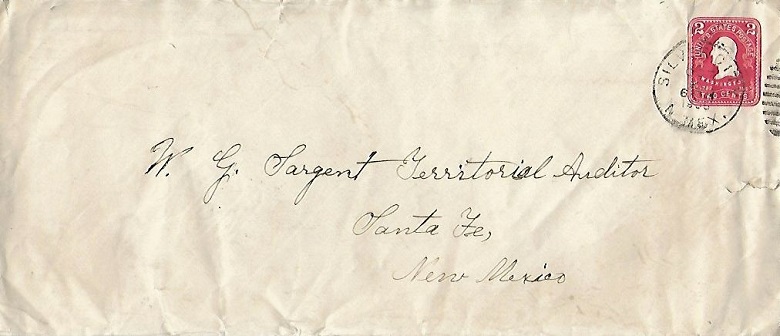 2 UNITED STATES POSTAGE 2
WASHINGTON
TWO CENTS
SILVER CITY
N. MEX.
W. G. Sargent Territorial Auditor
Santa Fe,
New Mexico